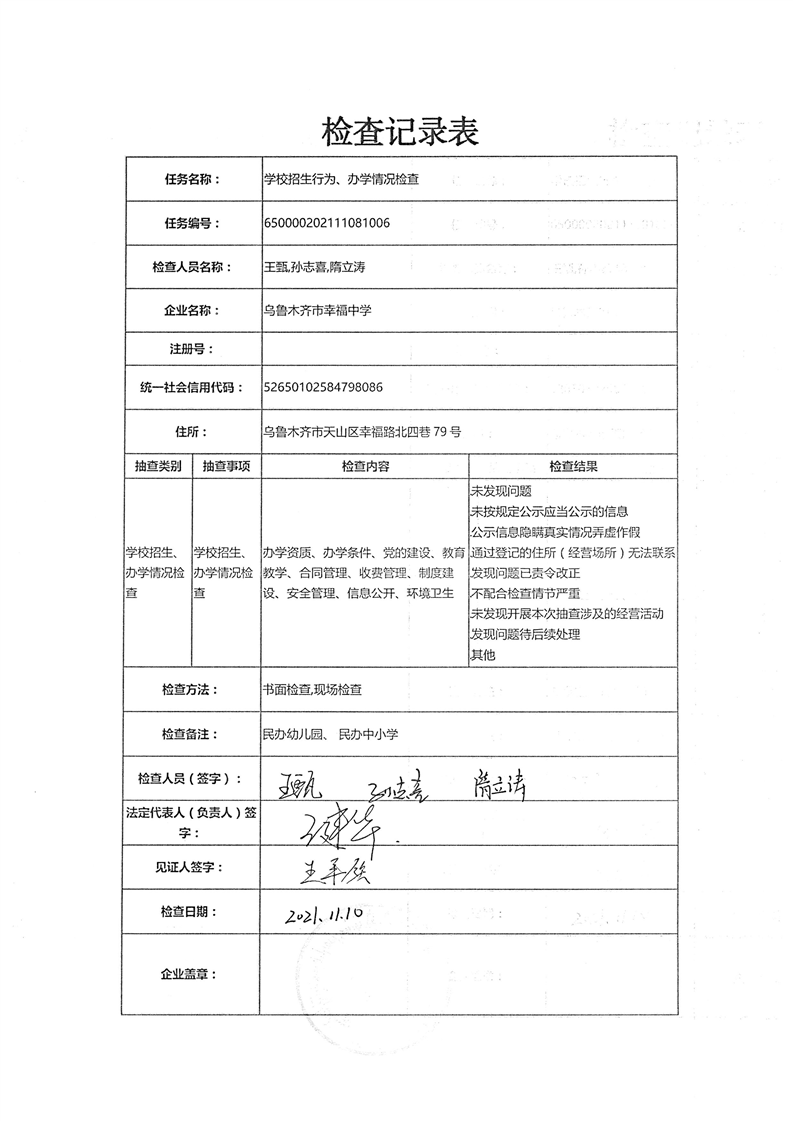 检查记录表
任务名称： 学校招生行为、办学情况检查
任务编号： 650000202111081006
检查人员名称： 王甄,孙志喜,隋立涛
企业名称： 乌鲁木齐市幸福中学
注册号：
统一社会信用代码： 52650102584798086
住所： 乌鲁木齐市天山区幸福路北四巷 79 号
抽查类别 抽查事项 检查内容 检查结果
学校招生、
办学情况检
查
学校招生、
办学情况检
查
办学资质、办学条件、党的建设、教育
教学、合同管理、收费管理、制度建
设、安全管理、信息公开、环境卫生
未发现问题
未按规定公示应当公示的信息
公示信息隐瞒真实情况弄虚作假
通过登记的住所（经营场所）无法联系
发现问题已责令改正
不配合检查情节严重
未发现开展本次抽查涉及的经营活动
发现问题待后续处理
其他
检查方法： 书面检查,现场检查
检查备注： 民办幼儿园、 民办中小学
检查人员（签字）： 王甄 孙志喜 隋立涛
法定代表人（负责人）签
字：
见证人签字：
检查日期： 2021.11.10
企业盖章：